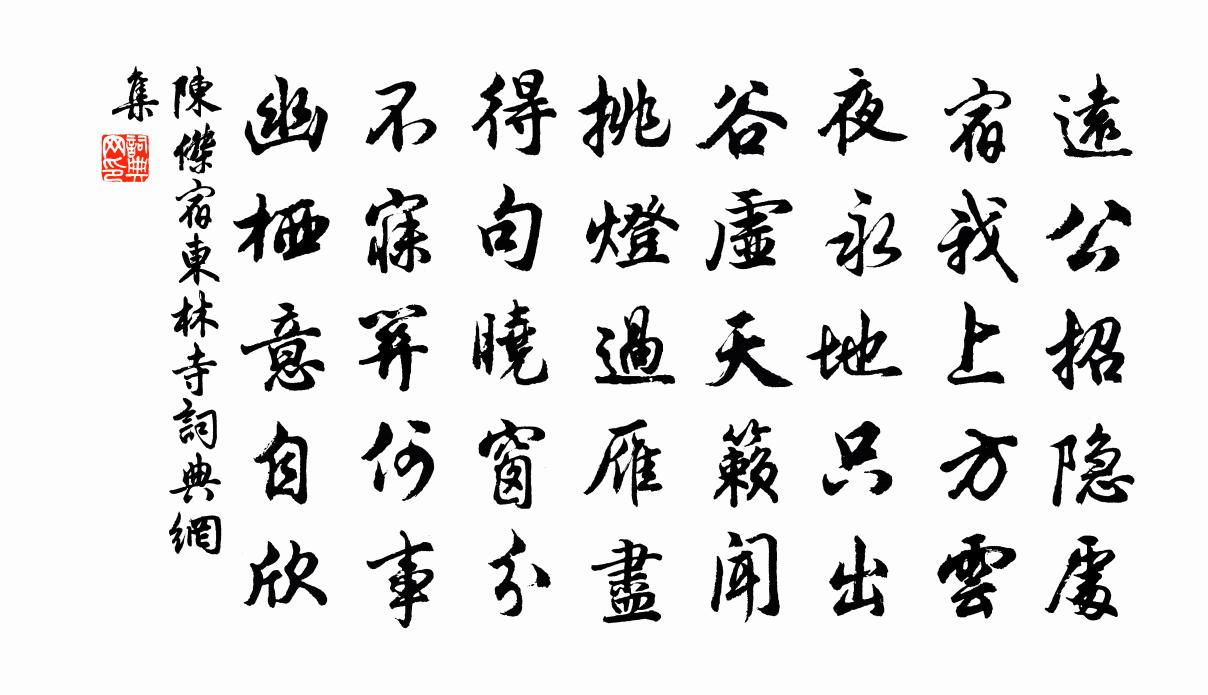 遠公招隐處
宿我上方雲
夜永地只出
谷虛天籟聞
挑燈過雁盡
得句曉窗分
不寐羿何事
幽栖意自欣
陳傑宿東林寺詞典網
集
詞典網印